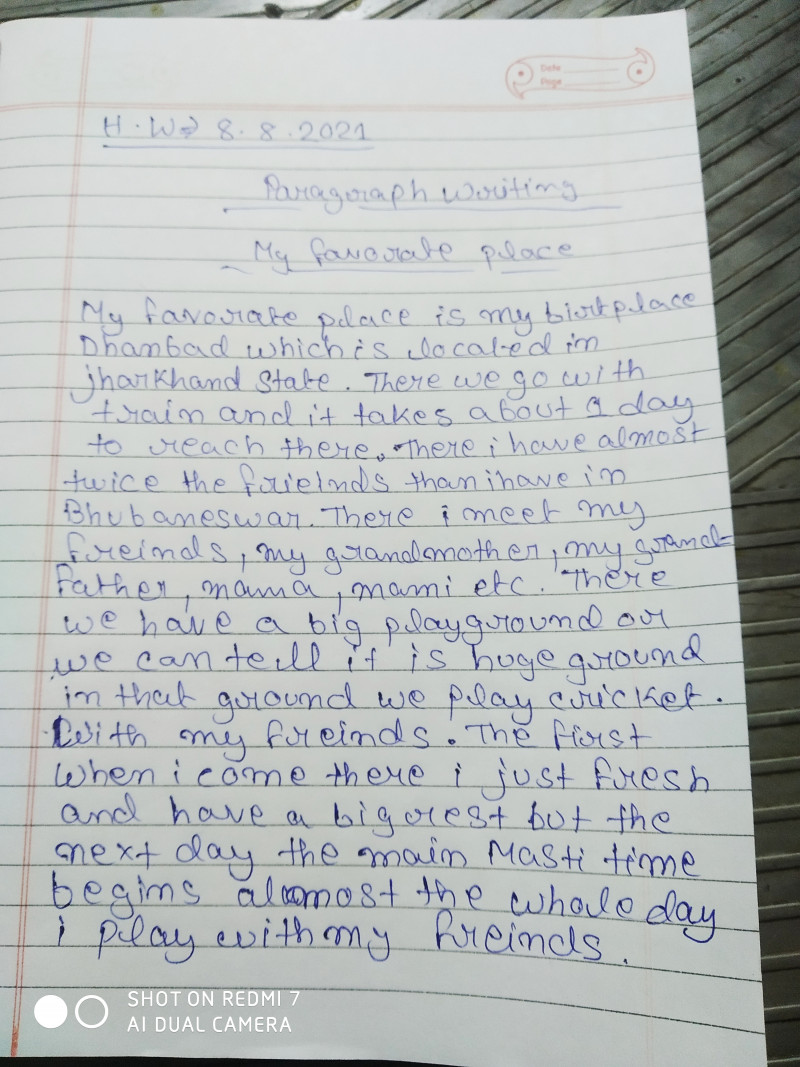 Date
Page
H.W⇒ 8.8.2021
Paragraph writing
My favorate place
My favorate place is my birtplace
Dhanbad which is located in
jharkhand State. There we go with
train and it takes about 1 day
to reach there. There i have almost
twice the frieinds than i have in
Bhubaneswar. There i meet my
freinds, my grandmother, my grand-
father, mama, mami etc. There
we have a big playground or
we can tell it is huge ground
in that ground we play cricket.
With my freinds. The first
when i come there i just fresh
and have a big rest but the
next day the main Masti time
begins almost the whole day
i play with my freinds.
SHOT ON REDMI 7
AI DUAL CAMERA